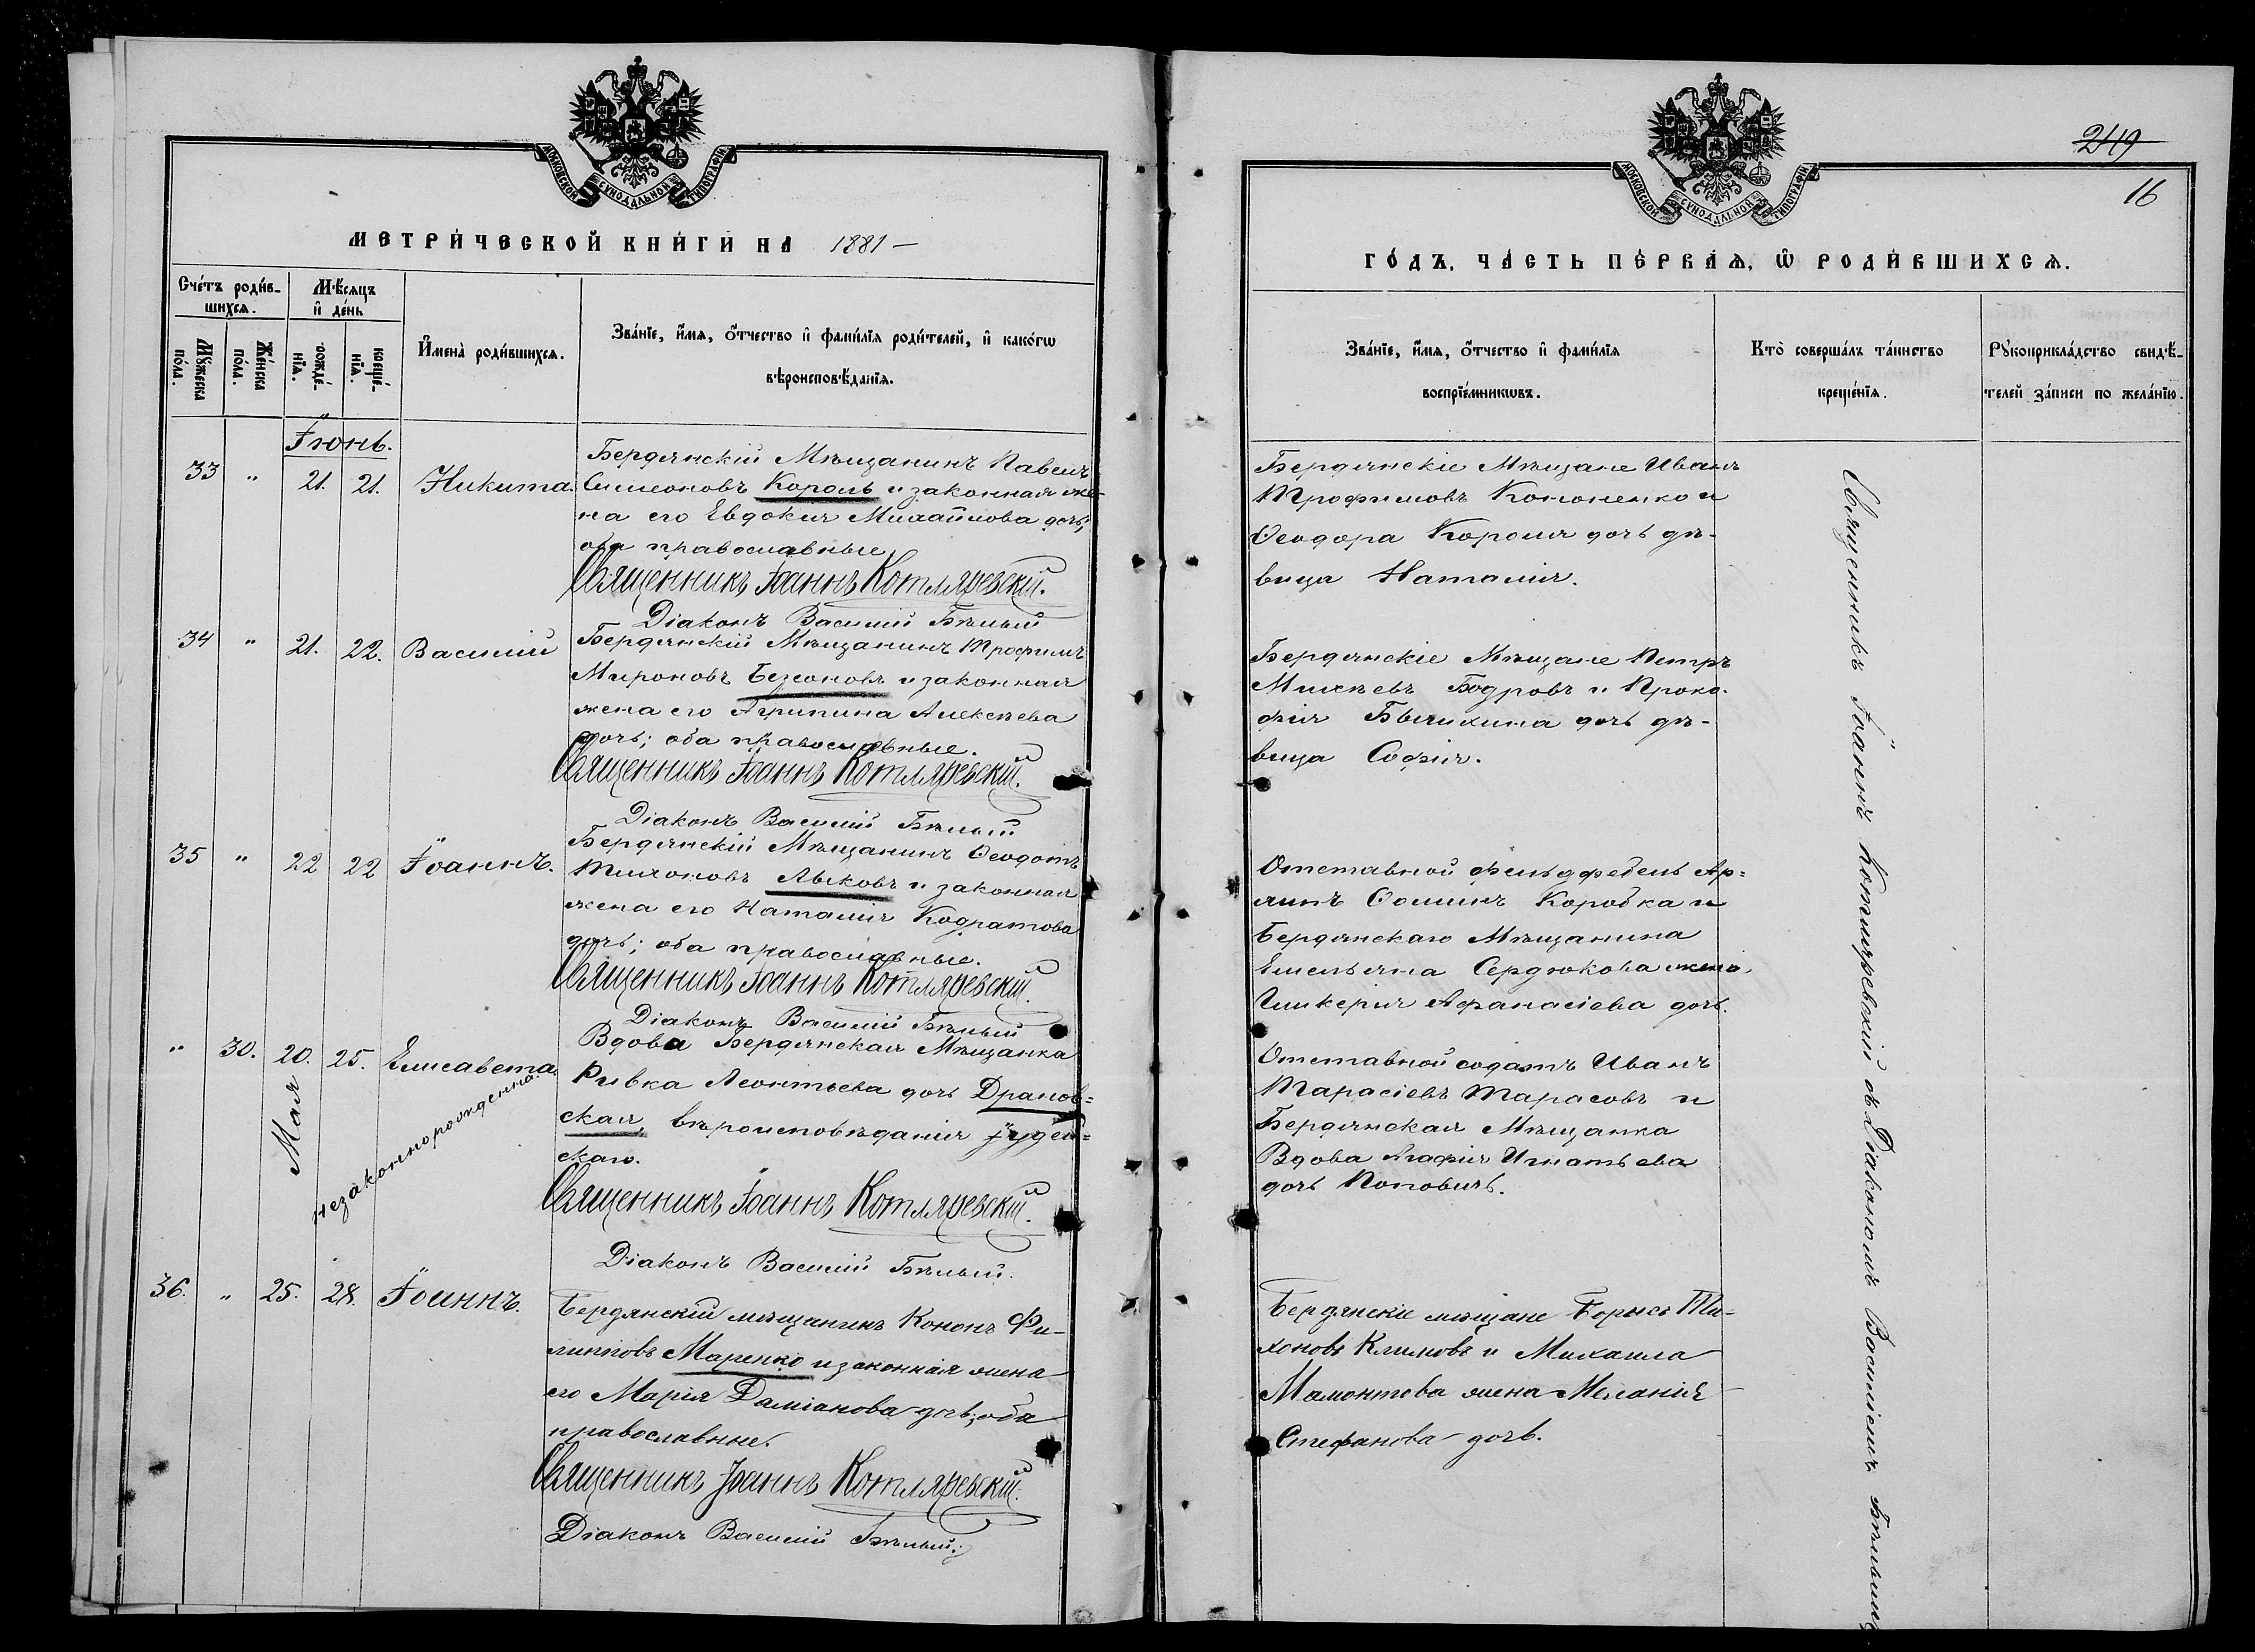 МОСКОВСКОЙ СУНОДАЛЬНОЙ ТИПОГРАФІИ
МЕТРИ́ЧЕСКОЙ КНИ́ГИ НА 1881 —
Сче́тъ роди́в-
шихсѧ.
Мѣ́сѧцъ
и҆ де́нь
Мꙋ́жеска по́ла.
Же́нска по́ла.
рожде́-
нїѧ.
креще́-
нїѧ.
И҆мена̀ роди́вшихсѧ.
Зва́нїе, и҆́мѧ, ѻ҆́тчество и҆ фами́лїѧ роди́телей, и҆ како́гѡ
вѣроисповѣ́данїѧ.
Іюнь.
33 " 21. 21. Никита.
Бердянскій Мѣщанинъ Павелъ
Симеоновъ Король и законная же-
на его Евдокія Михайлова дочь;
оба православные
Священникъ Іоаннъ Котляревскій.
Діаконъ Василій Бѣлый
34 " 21. 22. Василій
Бердянскій Мѣщанинъ Трофимъ
Мироновъ Безсоновъ и законная
жена его Агрипина Алексѣева
дочь; оба православные.
Священникъ Іоаннъ Котляревскій.
Діаконъ Василій Бѣлый
35 " 22 22 Іоаннъ.
Бердянскій Мѣщанинъ Ѳеодотъ
Тихоновъ Лыковъ и законная
жена его Наталія Кодратова
дочь; оба православные.
Священникъ Іоаннъ Котляревскій.
Діаконъ Василій Бѣлый
" 30. 20. 25. Елисавета.
Мая
незаконнорожденна.
Вдова Бердянская Мѣщанка
Ривка Леонтьева дочь Дранов=
ская, вѣроисповѣданія Іудей=
скаго.
Священникъ Іоаннъ Котляревскій.
Діаконъ Василій Бѣлый.
36. " 25. 28. Іоаннъ.
Бердянскій мѣщанинъ Кононъ Фи-
липповъ Маренко и законная жена
его Марія Даміанова дочь; оба
православные.
Священникъ Іоаннъ Котляревскій.
Діаконъ Василій Бѣлый.
МОСКОВСКОЙ СУНОДАЛЬНОЙ ТИПОГРАФІИ
249
16
ГО́ДЪ, ЧА́СТЬ ПЕ́РВАѦ, Ѡ҆ РОДИ́ВШИХСѦ.
Зва́нїе, и҆́мѧ, ѻ҆́тчество и҆ фами́лїѧ
воспрїе́мникѡвъ.
Кто̀ соверша́лъ та́инство
креще́нїѧ.
Рꙋкоприкла́дство свидѣ́-
телей за́писи по жела́нїю.
Бердянскіе Мѣщане Иванъ
Трофимовъ Кононенко и
Ѳеодора Короля дочь дѣ-
вица Наталія.
Бердянскіе Мѣщане Петръ
Михѣевъ Бодровъ и Проко-
фія Бычихина дочь дѣ-
вица Софія.
Отставной фельдфебель Ар=
липъ Ѳоминъ Коробка и
Бердянскаго Мѣщанина
Емельяна Сердюкова жена
Гликерія Афанасіева дочь.
Отставной содатъ Иванъ
Тарасіевъ Тарасовъ и
Бердянская Мѣщанка
Вдова Агафія Игнатьева
дочь Поповичъ.
Бердянскіе мѣщане Борисъ Ти-
хоновъ Климовъ и Михаила
Мамонтова жена Меланія
Стефанова дочь.
Священникъ Іоаннъ Котляревскій съ Діакономъ Василіемъ Бѣлымъ